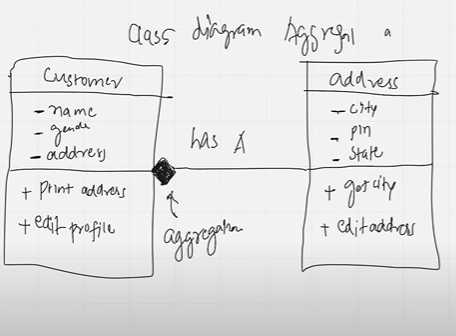 class diagram Aggregat a
Customer
- name
- gende
- address
+ print address
+ edit profile
has A
aggregation
address
- city
- pin
- state
+ getcity
+ editaddress